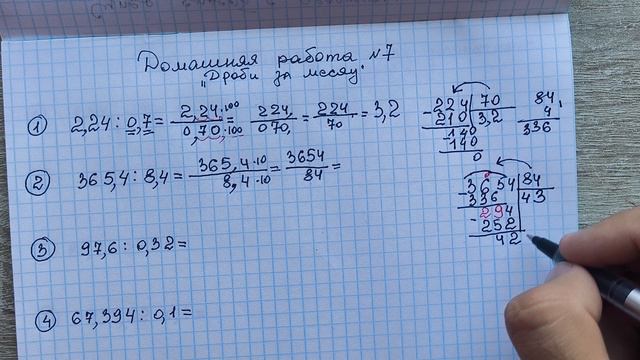 Домашняя работа №7
"Дроби за месяц"
1 2,24 : 0,7 = 2,24·100 / 0,70·100 = 224, / 070, = 224 / 70 = 3,2
2 365,4 : 8,4 = 365,4·10 / 8,4·10 = 3654 / 84 =
3 97,6 : 0,32 =
4 67,394 : 0,1 =
224 70
- 210 3,2
140
- 140
0
84
4
336
3654 84
- 336 43
294
- 252
42